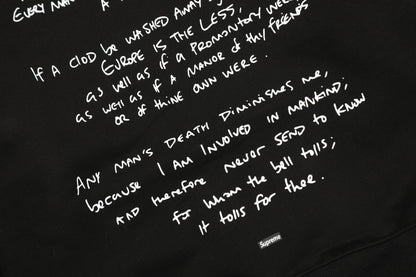 EVERY MAN
A
IF A CLOD BE WASHED AWAY
EUROPE IS THE LESS,
as well as if a PROMONTORY WERE
as well as if A MANOR of thy FRIENDS
OR of thine OWN WERE.
ANY MAN'S DEATH DIMINISHES ME,
because I AM INVOLVED IN MANKIND;
AND therefore NEVER SEND TO KNOW
for whom the bell tolls;
It tolls for thee.
Supreme